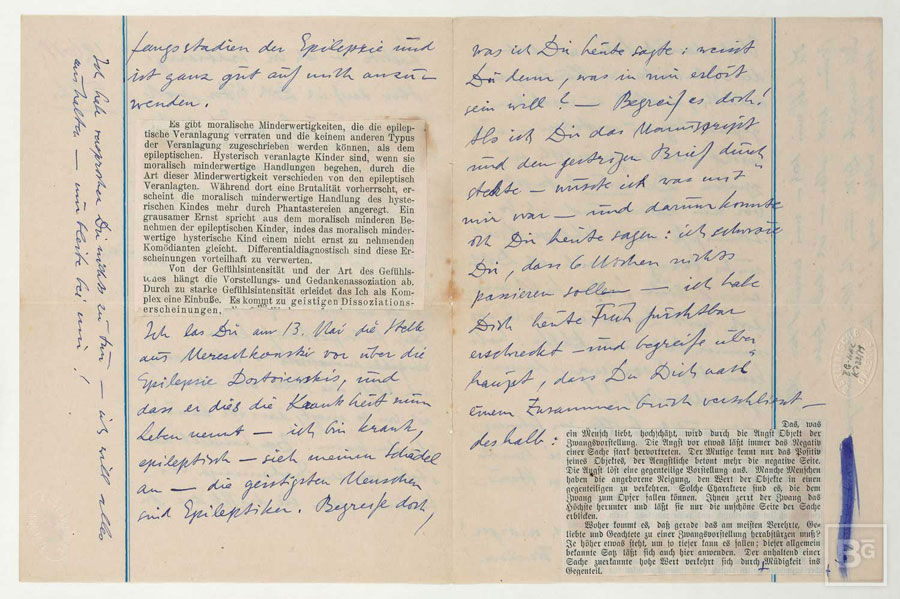 Ich habe versprochen Dir nichts zu tun — ich will alles
aushalten — nun bleibe bei mir!
fangsstadien der Epilepsie und
ist ganz gut auf mich anzu-
wenden.
Es gibt moralische Minderwertigkeiten, die die epilep-
tische Veranlagung verraten und die keinem anderen Typus
der Veranlagung zugeschrieben werden können, als dem
epileptischen. Hysterisch veranlagte Kinder sind, wenn sie
moralisch minderwertige Handlungen begehen, durch die
Art dieser Minderwertigkeit verschieden von den epileptisch
Veranlagten. Während dort eine Brutalität vorherrscht, er-
scheint die moralisch minderwertige Handlung des hyste-
rischen Kindes mehr durch Phantastereien angeregt. Ein
grausamer Ernst spricht aus dem moralisch minderen Be-
nehmen der epileptischen Kinder, indes das moralisch minder-
wertige hysterische Kind einem nicht ernst zu nehmenden
Komödianten gleicht. Differentialdiagnostisch sind diese Er-
scheinungen vorteilhaft zu verwerten.
Von der Gefühlsintensität und der Art des Gefühls-
tones hängt die Vorstellungs- und Gedankenassoziation ab.
Durch zu starke Gefühlsintensität erleidet das Ich als Kom-
plex eine Einbuße. Es kommt zu geistigen Dissoziations-
erscheinungen,
Ich las Dir am 13. Mai die Stelle
aus Mereschkowski vor über die
Epilepsie Dostoiewskis, und
dass er dies die Krankheit zum
Leben nennt — ich bin krank,
epileptisch — sieh meinen Schädel
an — die geistigsten Menschen
sind Epileptiker. Begreife doch,
was ich Dir heute sagte: weisst
Du denn, was in mir erlöst
sein will? — Begreif es doch!
Als ich Dir das Manuskript
und den gestrigen Brief durch
steckte — wusste ich was mit
mir war — und darum konnte
ich Dir heute sagen: ich schwöre
Dir, dass 6 Wochen nichts
passieren sollen — ich habe
Dich heute Früh furchtbar
erschreckt — und begreife über
haupt, dass Du Dich nach
einem Zusammenbruch verschliesst —
deshalb:
Das, was
ein Mensch liebt, hochschätzt, wird durch die Angst Objekt der
Zwangsvorstellung. Die Angst vor etwas läßt immer das Negativ
einer Sache stark hervortreten. Der Mutige kennt nur das Positiv
eines Objektes, der Aengstliche betont mehr die negative Seite.
Die Angst löst eine gegenteilige Vorstellung aus. Manche Menschen
haben die angeborene Neigung, den Wert der Objekte in einen
gegenteiligen zu verkehren. Solche Charaktere sind es, die dem
Zwang zum Opfer fallen können. Ihnen zerrt der Zwang das
Höchste herunter und läßt sie nur die unschöne Seite der Sache
erblicken.
Woher kommt es, daß gerade das am meisten Verehrte, Ge-
liebte und Geachtete zu einer Zwangsvorstellung herabstürzen muß?
Je höher etwas steht, um so tiefer kann es fallen; dieser allgemein
bekannte Satz läßt sich auch hier anwenden. Der anhaltend einer
Sache zuerkannte hohe Wert verkehrt sich durch Müdigkeit ins
Gegenteil.
BG